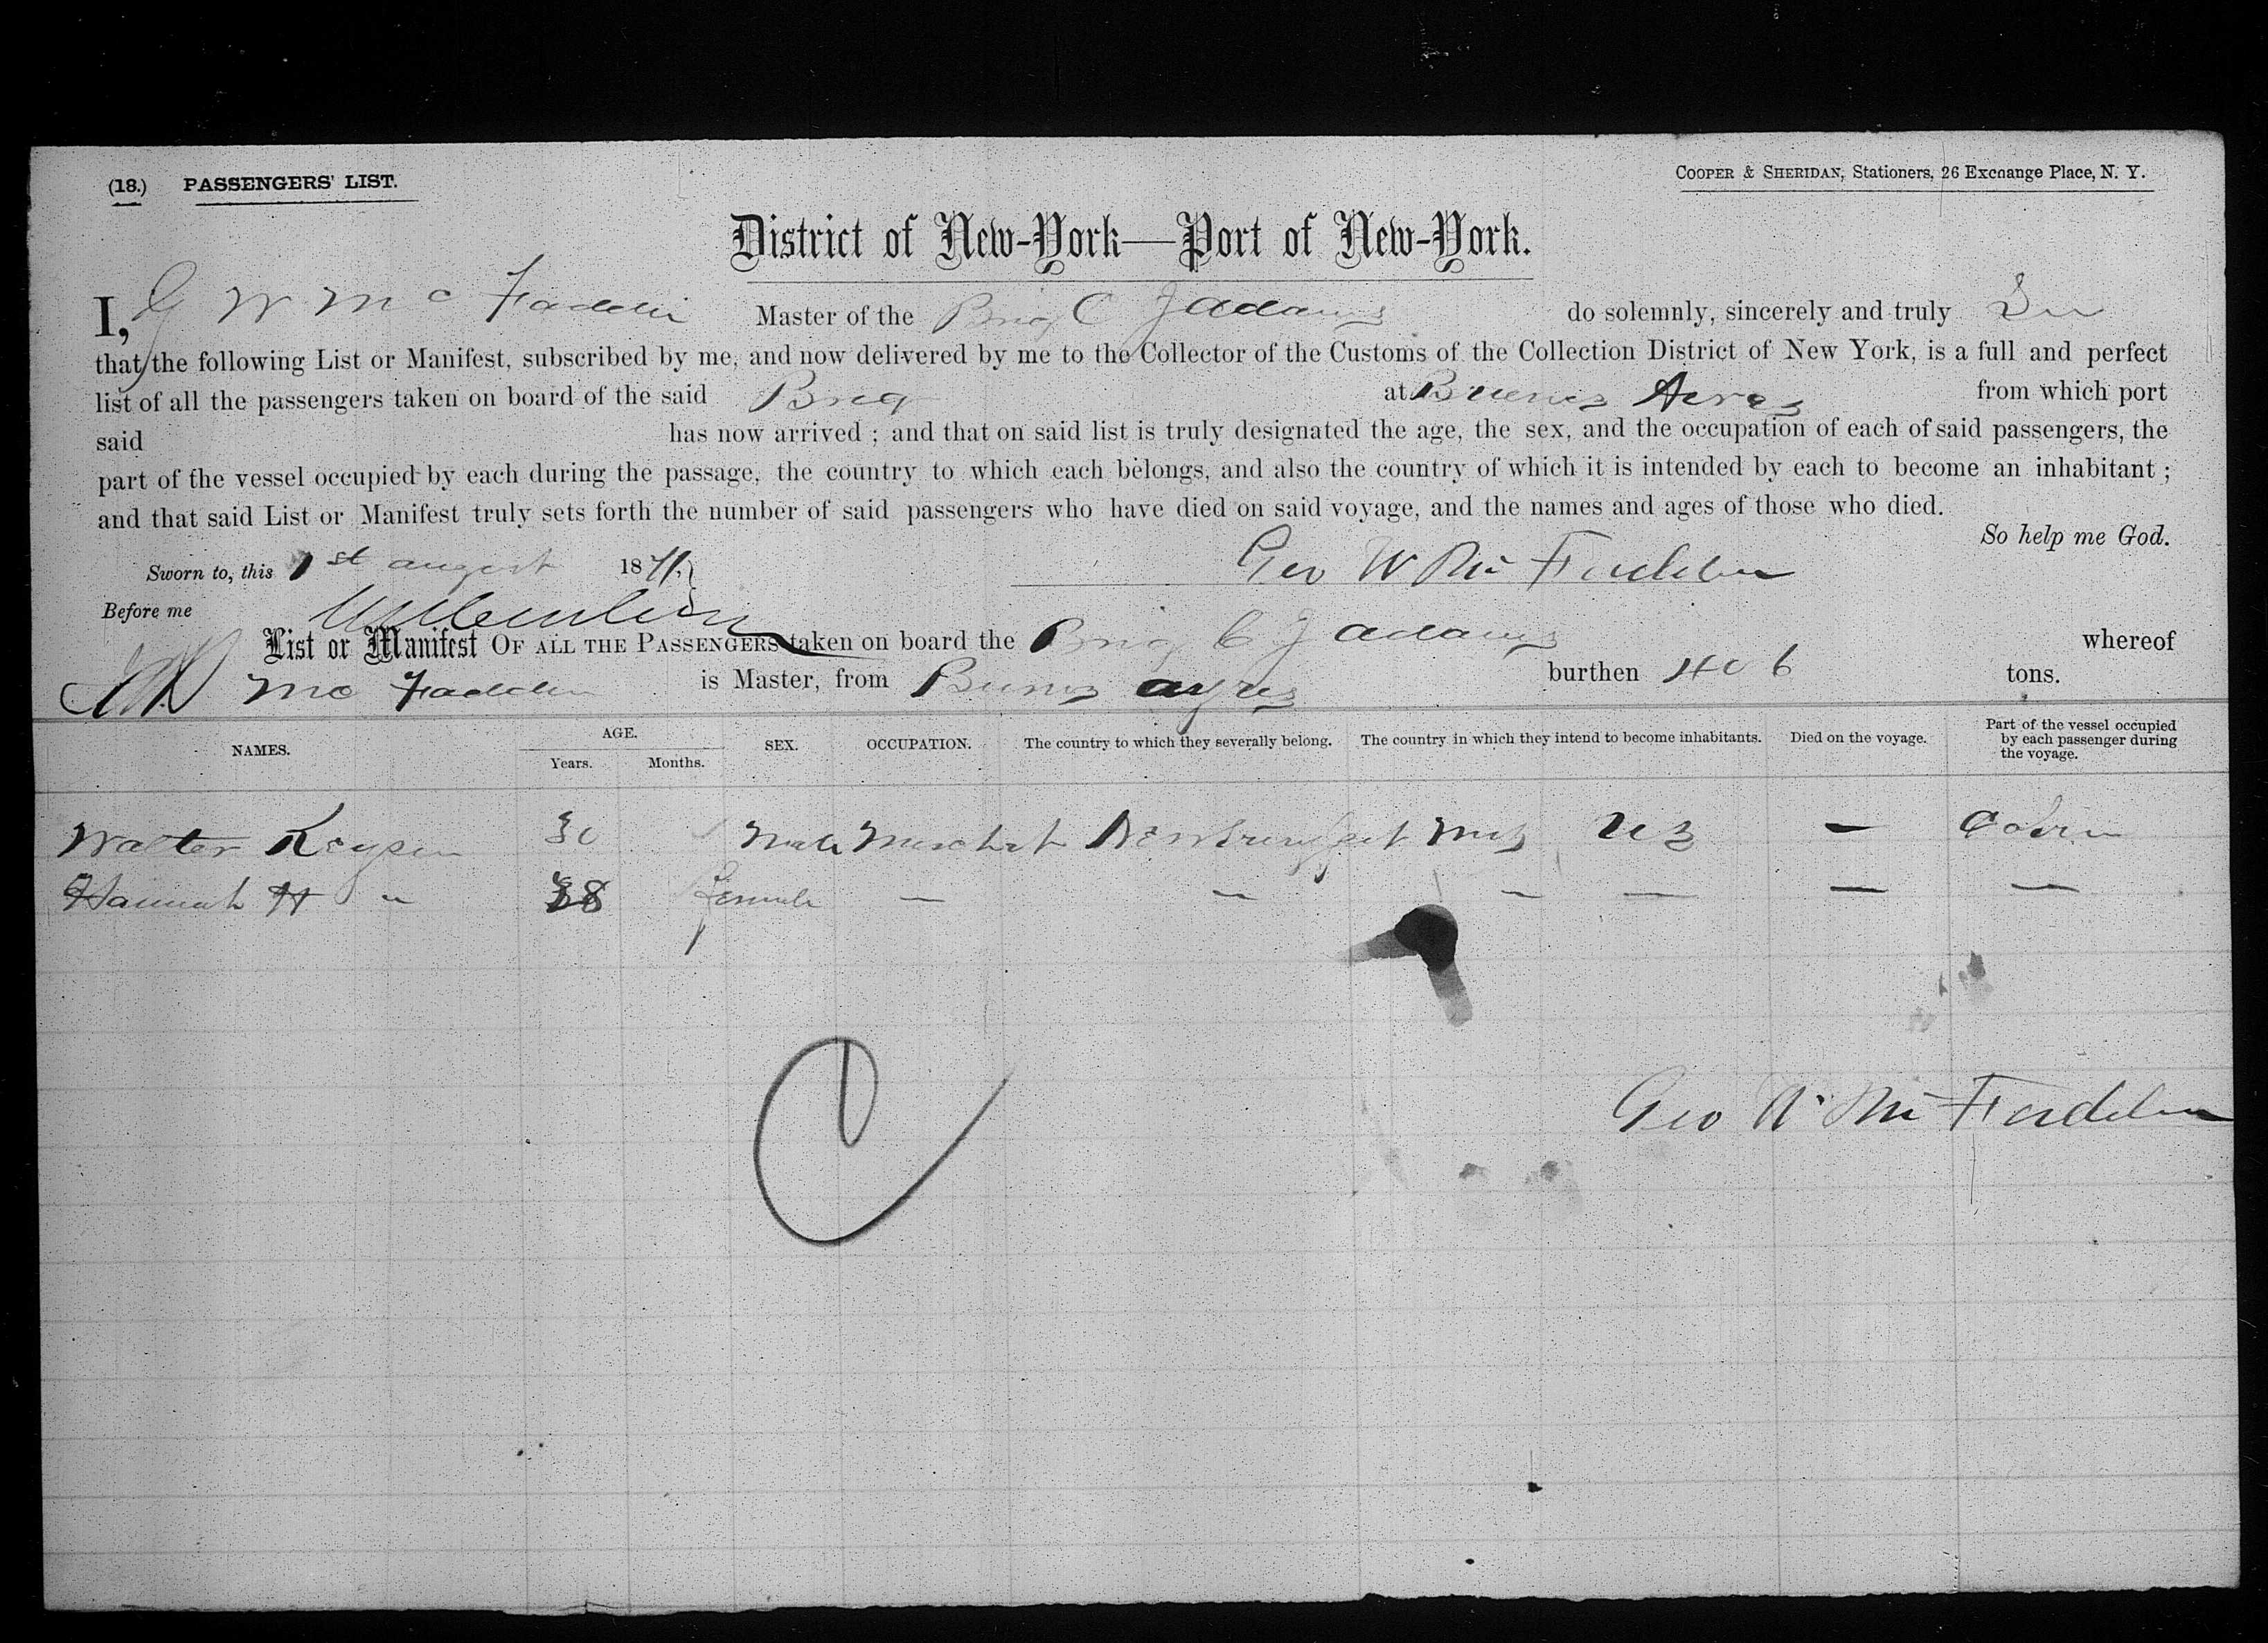 (18.) PASSENGERS' LIST. COOPER & SHERIDAN, Stationers, 26 Exchange Place, N. Y.
District of New-York—Port of New-York.
I, G W Mc Fadden Master of the Brig C J Adams do solemnly, sincerely and truly
that the following List or Manifest, subscribed by me, and now delivered by me to the Collector of the Customs of the Collection District of New York, is a full and perfect
list of all the passengers taken on board of the said Brig at Buenos Ayres from which port
said has now arrived ; and that on said list is truly designated the age, the sex, and the occupation of each of said passengers, the
part of the vessel occupied by each during the passage, the country to which each belongs, and also the country of which it is intended by each to become an inhabitant ;
and that said List or Manifest truly sets forth the number of said passengers who have died on said voyage, and the names and ages of those who died.
So help me God.
Sworn to, this 1st august 1871, Geo W Mc Fadden
Before me
List or Manifest OF ALL THE PASSENGERS taken on board the Brig C J adams whereof
Mc Fadden is Master, from Buenos ayres burthen 406 tons.
NAMES. AGE. Years. Months. SEX. OCCUPATION. The country to which they severally belong. The country in which they intend to become inhabitants. Died on the voyage. Part of the vessel occupied by each passenger during the voyage.
Walter 30 Male U S — Cabin
Hannah H " 28 Female — — — — — —
Geo W Mc Fadden